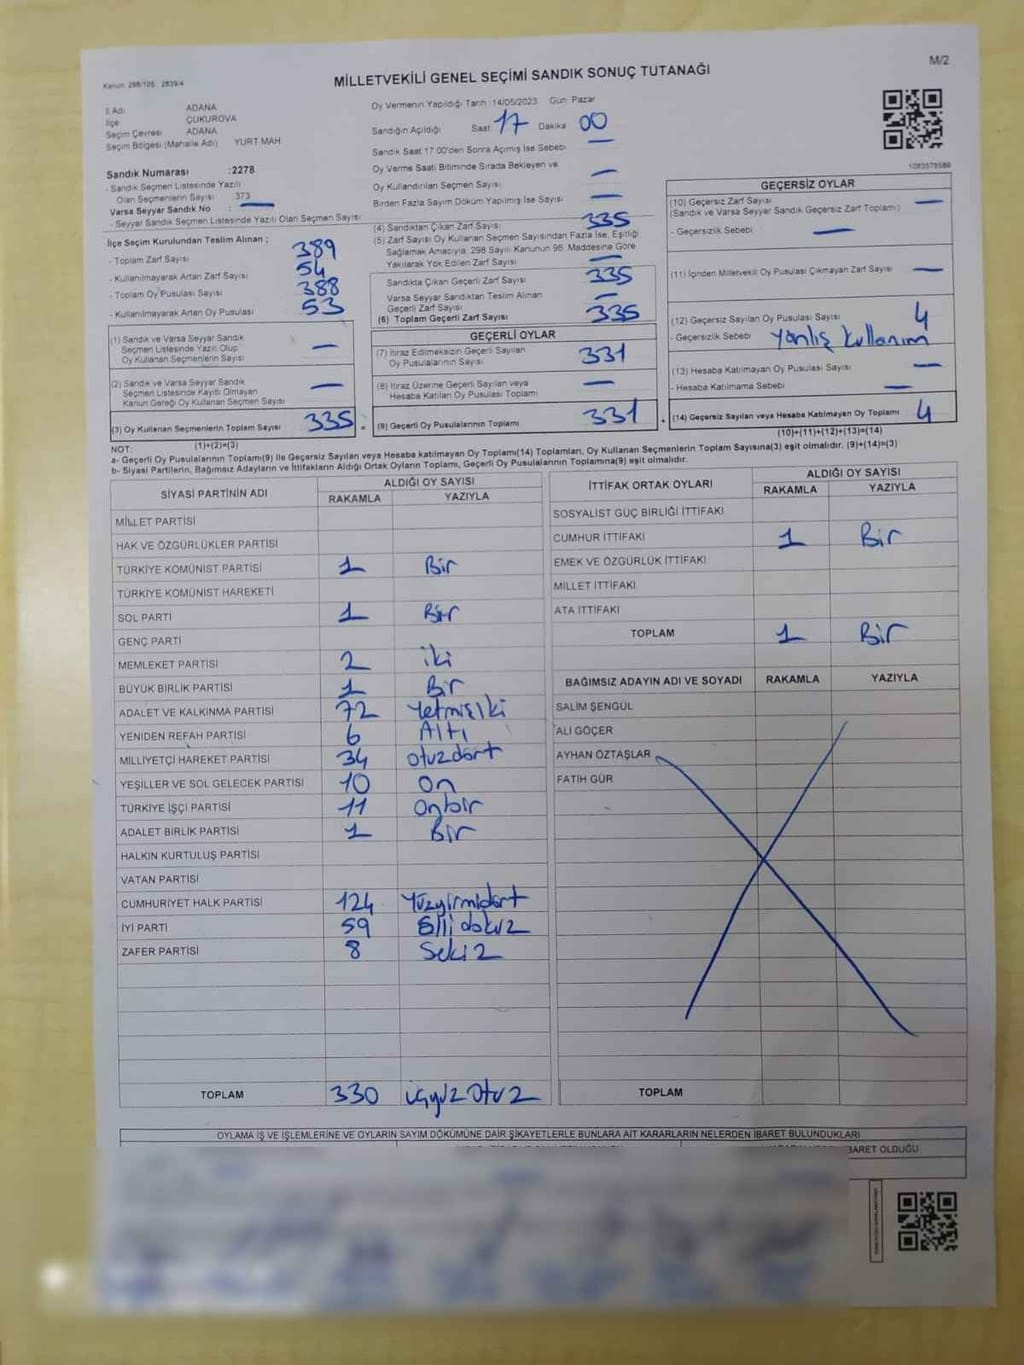 Kanun: 298/105 2839/4
M/2
MİLLETVEKİLİ GENEL SEÇİMİ SANDIK SONUÇ TUTANAĞI
İl Adı ADANA
İlçe ÇUKUROVA
Seçim Çevresi ADANA
Seçim Bölgesi (Mahalle Adı) YURT MAH
Sandık Numarası :2278
- Sandık Seçmen Listesinde Yazılı
Olan Seçmenlerin Sayısı 373
Varsa Seyyar Sandık No : —
- Seyyar Sandık Seçmen Listesinde Yazılı Olan Seçmen Sayısı
İlçe Seçim Kurulundan Teslim Alınan ;
- Toplam Zarf Sayısı 389
- Kullanılmayarak Artan Zarf Sayısı 54
- Toplam Oy Pusulası Sayısı 388
- Kullanılmayarak Artan Oy Pusulası 53
(1) Sandık ve Varsa Seyyar Sandık
Seçmen Listesinde Yazılı Olup
Oy Kullanan Seçmenlerin Sayısı —
(2) Sandık ve Varsa Seyyar Sandık
Seçmen Listesinde Kayıtlı Olmayan
Kanun Gereği Oy Kullanan Seçmen Sayısı —
(3) Oy Kullanan Seçmenlerin Toplam Sayısı 335
(1)+(2)=(3)
Oy Vermenin Yapıldığı Tarih :14/05/2023 Gün: Pazar
Sandığın Açıldığı Saat 17 Dakika 00
Sandık Saat 17:00'den Sonra Açılmış İse Sebebi —
Oy Verme Saati Bitiminde Sırada Bekleyen ve
Oy Kullandırılan Seçmen Sayısı —
Birden Fazla Sayım Döküm Yapılmış İse Sayısı —
(4) Sandıktan Çıkan Zarf Sayısı 335
(5) Zarf Sayısı Oy Kullanan Seçmen Sayısından Fazla İse, Eşitliği
Sağlamak Amacıyla, 298 Sayılı Kanunun 98. Maddesine Göre
Yakılarak Yok Edilen Zarf Sayısı —
Sandıkta Çıkan Geçerli Zarf Sayısı 335
Varsa Seyyar Sandıktan Teslim Alınan
Geçerli Zarf Sayısı —
(6) Toplam Geçerli Zarf Sayısı 335
GEÇERLİ OYLAR
(7) İtiraz Edilmeksizin Geçerli Sayılan
Oy Pusulalarının Sayısı 331
(8) İtiraz Üzerine Geçerli Sayılan veya
Hesaba Katılan Oy Pusulası Toplamı —
(9) Geçerli Oy Pusulalarının Toplamı 331
GEÇERSİZ OYLAR
(10) Geçersiz Zarf Sayısı
(Sandık ve Varsa Seyyar Sandık Geçersiz Zarf Toplamı) —
- Geçersizlik Sebebi —
(11) İçinden Milletvekili Oy Pusulası Çıkmayan Zarf Sayısı —
(12) Geçersiz Sayılan Oy Pusulası Sayısı 4
- Geçersizlik Sebebi Yanlış Kullanım
(13) Hesaba Katılmayan Oy Pusulası Sayısı —
- Hesaba Katılmama Sebebi —
(14) Geçersiz Sayılan veya Hesaba Katılmayan Oy Toplamı 4
(10)+(11)+(12)+(13)=(14)
NOT:
a- Geçerli Oy Pusulalarının Toplamı(9) ile Geçersiz Sayılan veya Hesaba katılmayan Oy Toplamı(14) Toplamları, Oy Kullanan Seçmenlerin Toplam Sayısına(3) eşit olmalıdır. (9)+(14)=(3)
b- Siyasi Partilerin, Bağımsız Adayların ve İttifakların Aldığı Ortak Oyların Toplamı, Geçerli Oy Pusulalarının Toplamına(9) eşit olmalıdır.
SİYASİ PARTİNİN ADI ALDIĞI OY SAYISI
RAKAMLA YAZIYLA
MİLLET PARTİSİ
HAK VE ÖZGÜRLÜKLER PARTİSİ
TÜRKİYE KOMÜNİST PARTİSİ 1 Bir
TÜRKİYE KOMÜNİST HAREKETİ
SOL PARTİ 1 Bir
GENÇ PARTİ
MEMLEKET PARTİSİ 2 iki
BÜYÜK BİRLİK PARTİSİ 1 Bir
ADALET VE KALKINMA PARTİSİ 72 Yetmişiki
YENİDEN REFAH PARTİSİ 6 Altı
MİLLİYETÇİ HAREKET PARTİSİ 34 otuzdört
YEŞİLLER VE SOL GELECEK PARTİSİ 10 On
TÜRKİYE İŞÇİ PARTİSİ 11 Onbir
ADALET BİRLİK PARTİSİ 1 Bir
HALKIN KURTULUŞ PARTİSİ
VATAN PARTİSİ
CUMHURİYET HALK PARTİSİ 124 Yüzyirmidört
İYİ PARTİ 59 Ellidokuz
ZAFER PARTİSİ 8 Sekiz
TOPLAM 330 üçyüz otuz
İTTİFAK ORTAK OYLARI ALDIĞI OY SAYISI
RAKAMLA YAZIYLA
SOSYALİST GÜÇ BİRLİĞİ İTTİFAKI
CUMHUR İTTİFAKI 1 Bir
EMEK VE ÖZGÜRLÜK İTTİFAKI
MİLLET İTTİFAKI
ATA İTTİFAKI
TOPLAM 1 Bir
BAĞIMSIZ ADAYIN ADI VE SOYADI RAKAMLA YAZIYLA
SALİM ŞENGÜL
ALİ GÖÇER
AYHAN ÖZTAŞLAR
FATİH GÜR
TOPLAM
OYLAMA İŞ VE İŞLEMLERİNE VE OYLARIN SAYIM DÖKÜMÜNE DAİR ŞİKAYETLERLE BUNLARA AİT KARARLARIN NELERDEN İBARET BULUNDUKLARI
BARET OLDUĞU